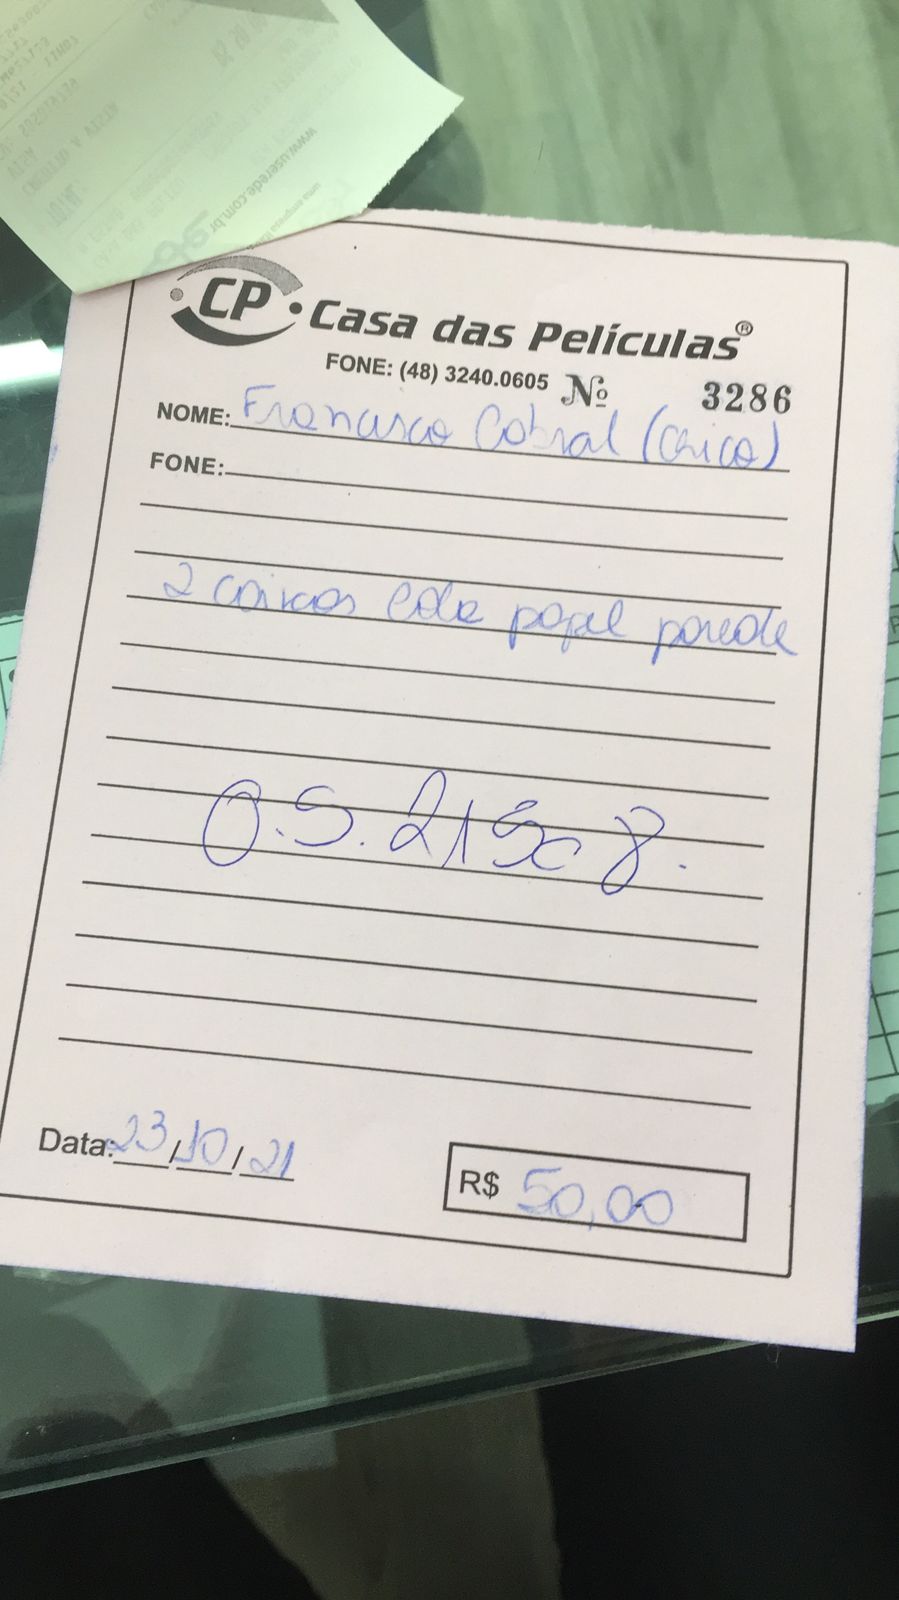 www.userede.com.br
CP Casa das Películas®
FONE: (48) 3240.0605 Nº 3286
NOME: Francisco Cabral (Chico)
FONE:
2 caixas cola papel parede
O.S.
Data: 23/10/21
R$ 50,00